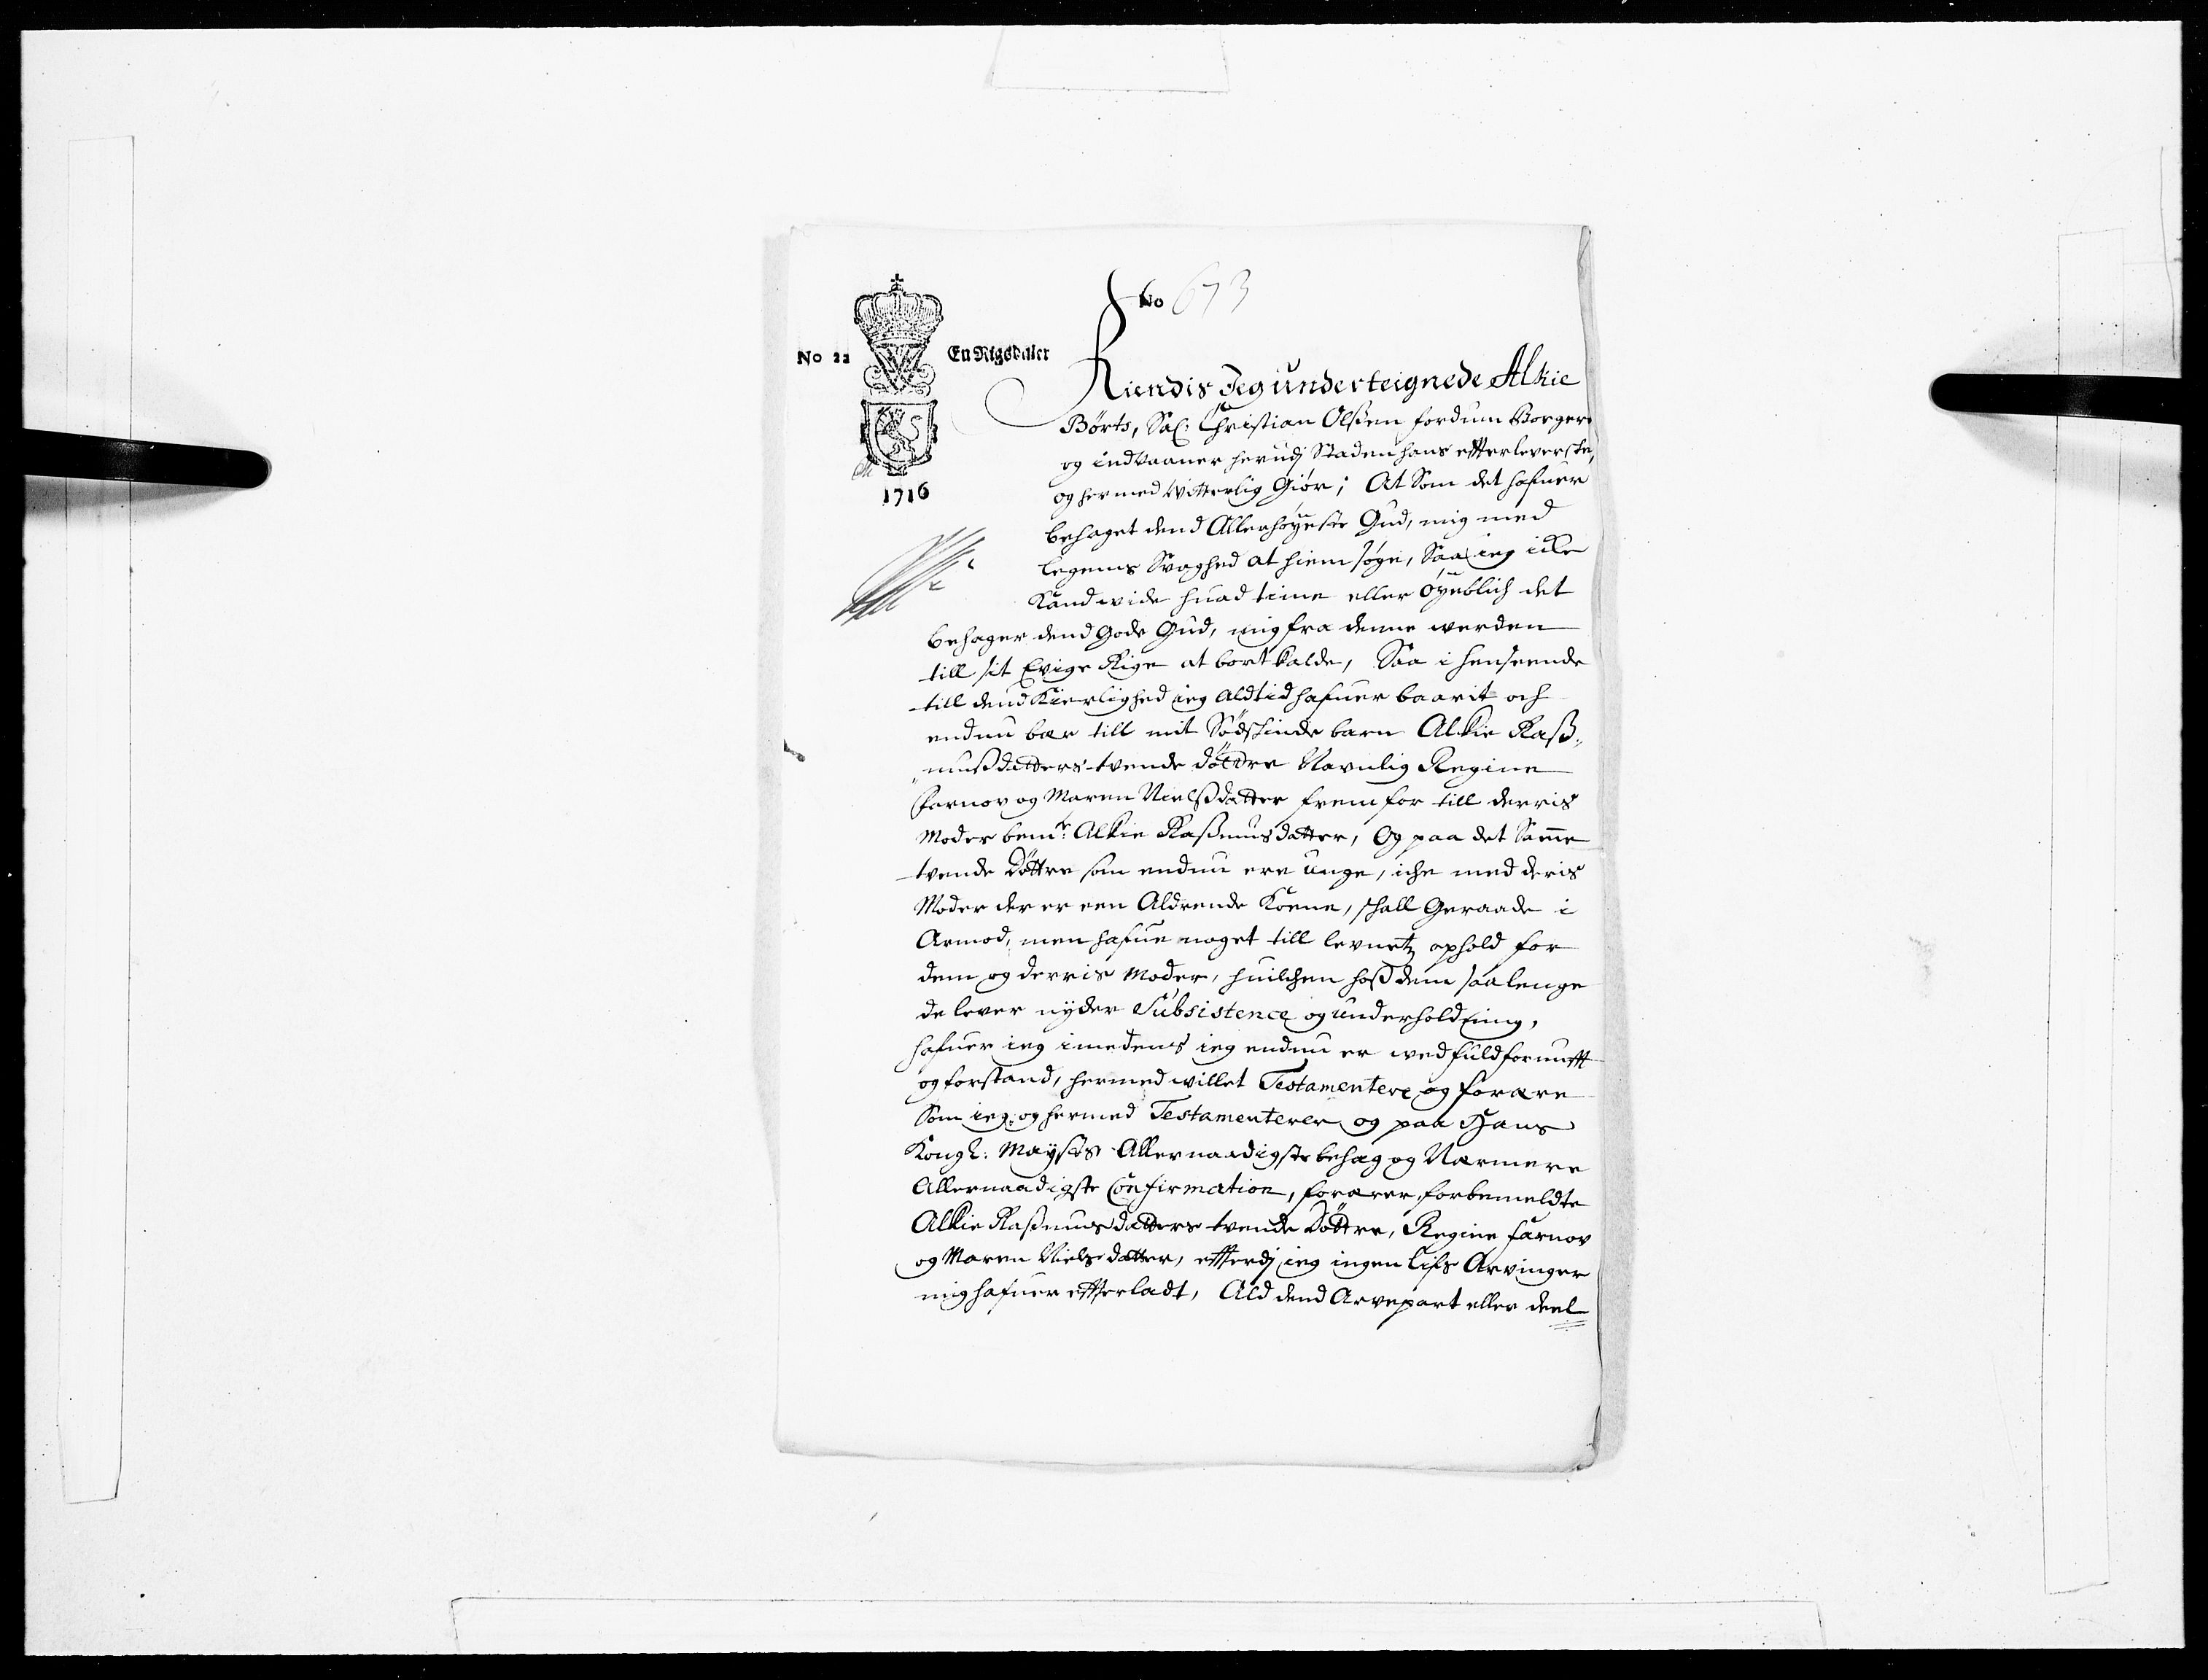 No 673
No 22 En Rigsdaler
1716
Kiendis Jeg underteignede Alkie
Børts, Sal: Christian Olsen fordum Borger
og indvaaner herudj Staden hans efterleverske,
og hermed witterlig Giør; At Som det hafuer
behaget dend Allerhøyeste Gud, mig med
legems Svaghed at hiemsøge, Saa ieg icke
Kand vide huad time eller øyeblich det
behager dend Gode Gud, mig fra denne werden
till sit Evige Rige at bortkalde, Saa i henseende
till dend Kierlighed ieg altid hafuer baarit och
endnu bær till mit Sødskinde barn Alkie Raß„
„mußdatters tvende døttre Navnlig Regine
Farnov og Maren Nielßdatter frem for till derris
Moder bemte: Alkie Raßmusdatter, Og paa det Samme
tvende Døttre som endnu ere unge, iche med deris
Moder der er een Aldrende Kone, schall Geraade i
Armod, men hafue noget till levnetz ophold for
dem og derris Moder, huilchen hoß dem saa lenge
de lever nyder Subsistence og underholdning,
hafuer ieg imedens ieg endnu er ved fuld fornufft
og forstand, hermed willet Testamentere og forære
Som ieg og hermed Testamenterer og paa Hans
Kongl: Mayts Allernaadigste behag og Nærmere
Allernaadigste Confirmation, forærer forbemeldte
Alkie Raßmusdatters tvende Døttre, Regine Farnov
og Maren Nielsdatter, efterdj ieg ingen Lifs Arvinger
mig hafuer efterladt, Ald dend Arvepart eller deel